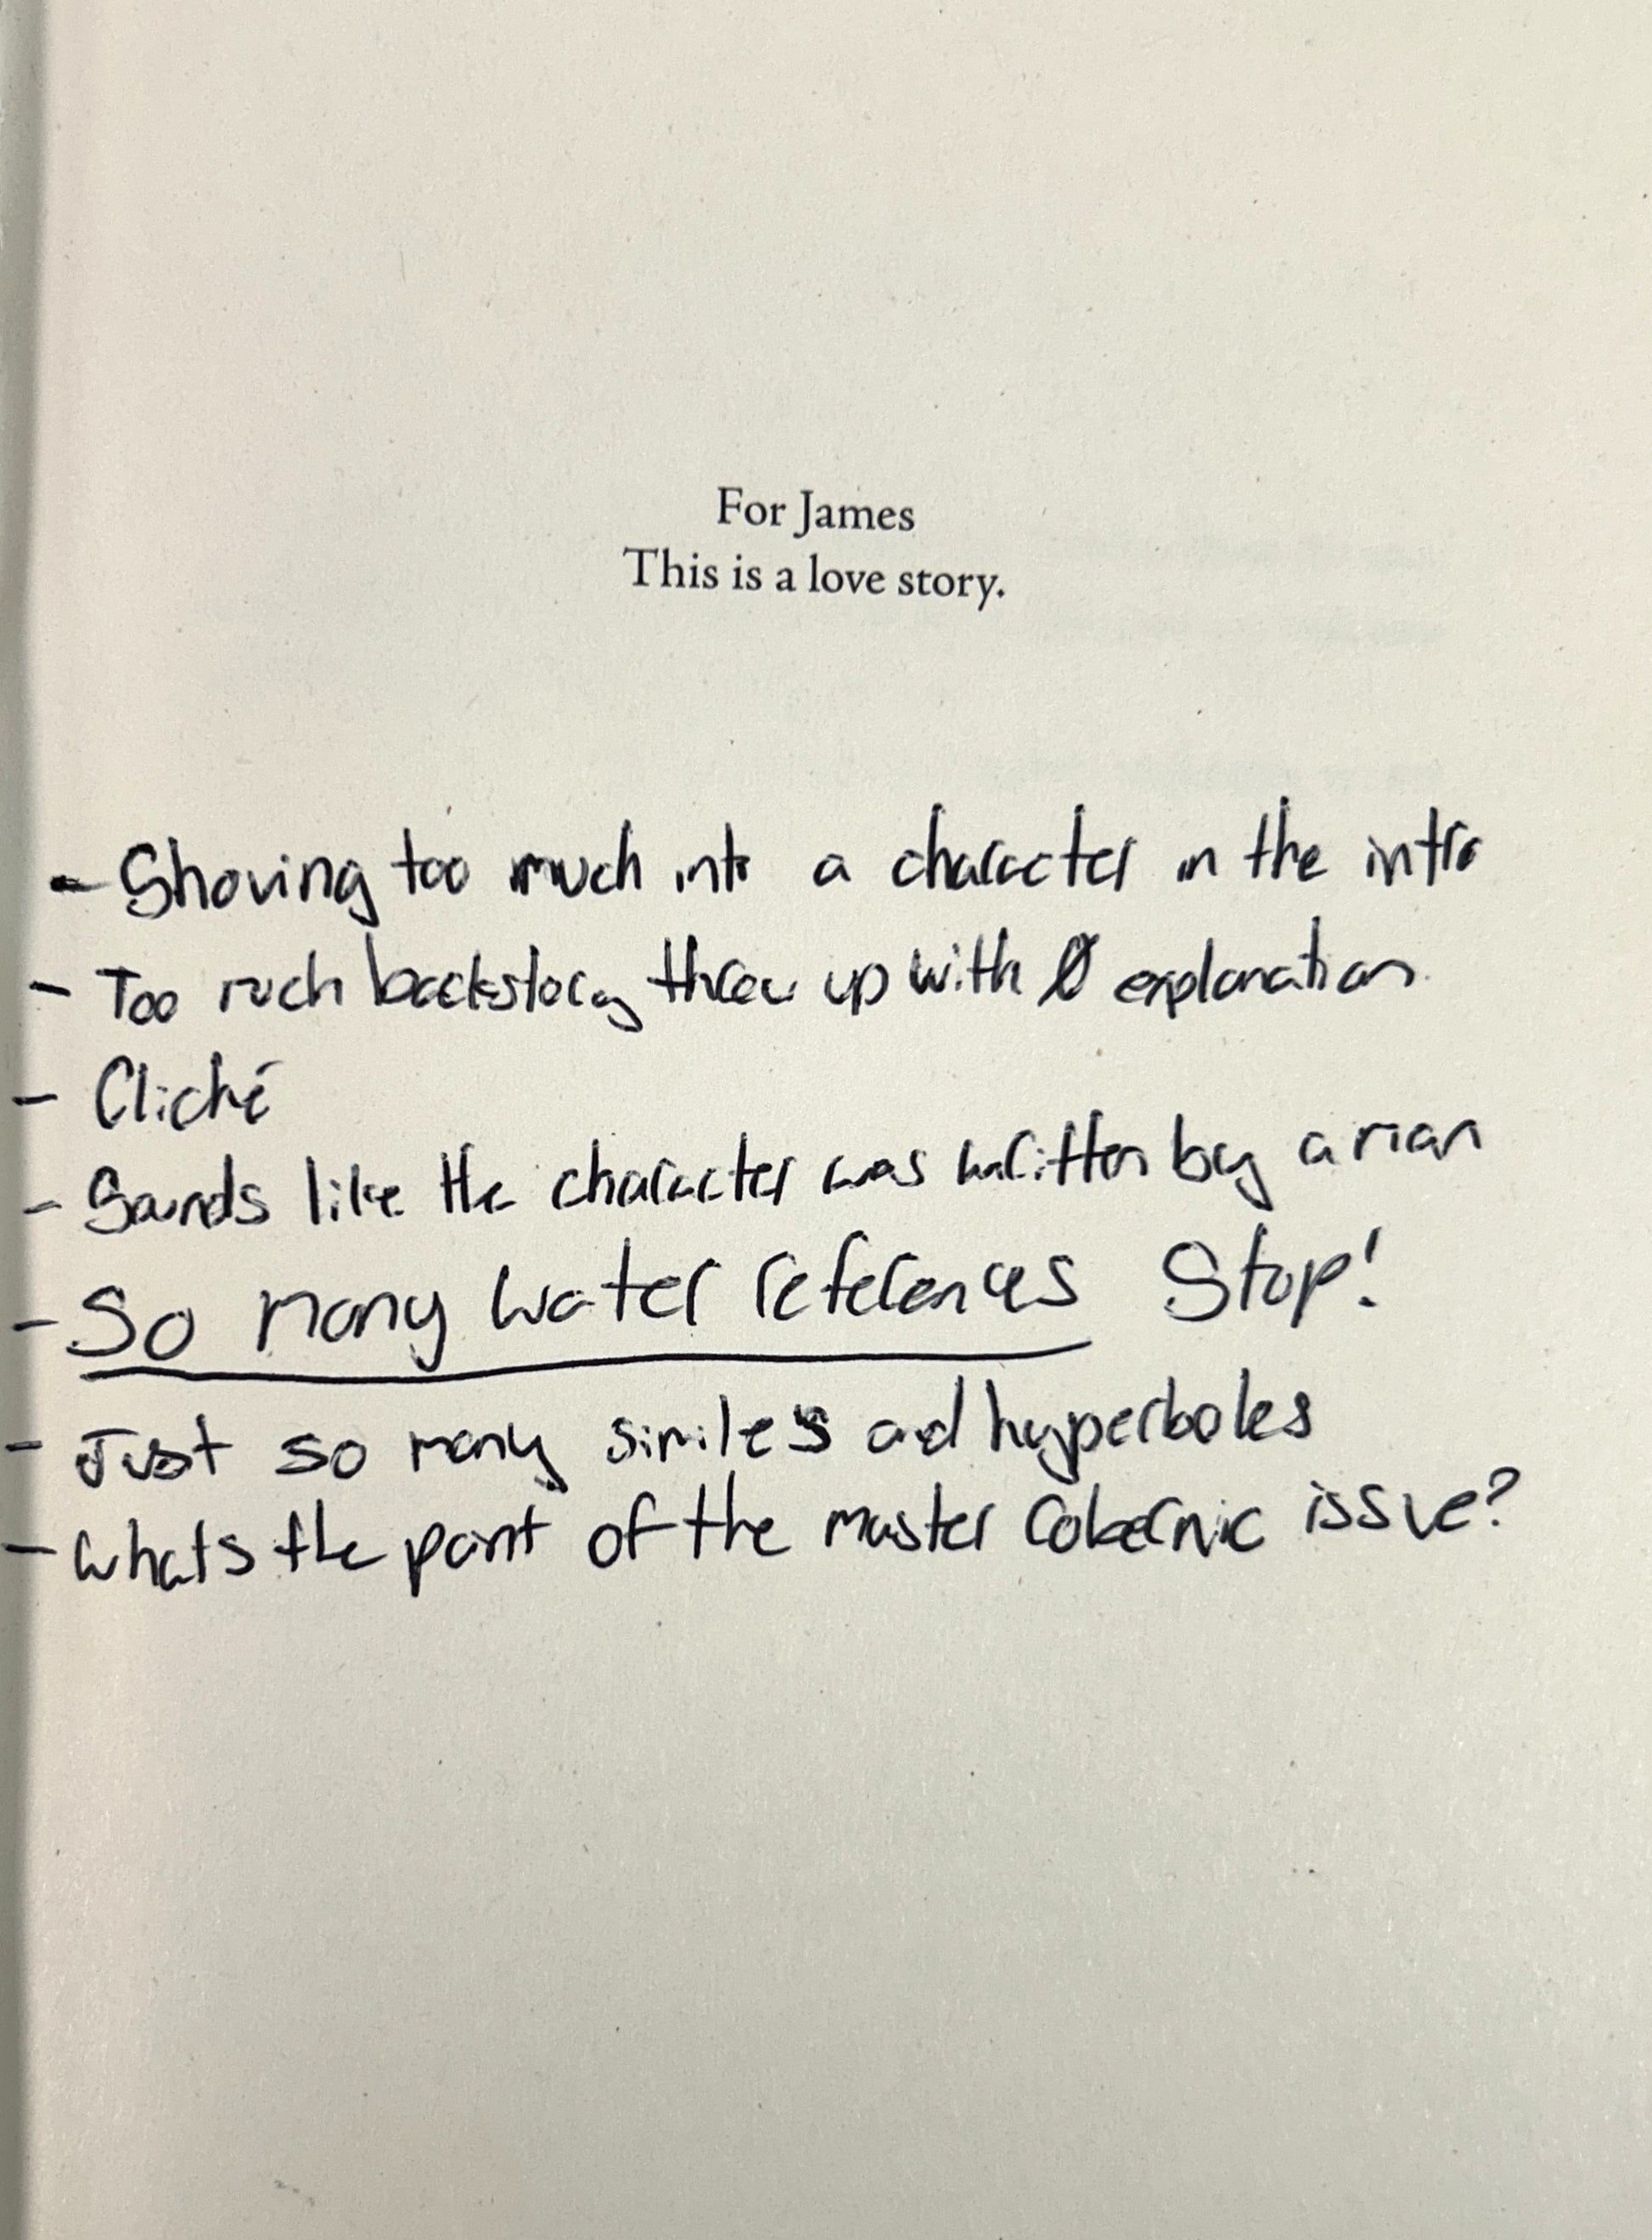 For James
This is a love story.
- Shoving too much into a character in the intro
- Too much backstory threw up with 0 explanation
- Cliché
- Sounds like the character was written by a man
- So many water references Stop!
- Just so many similes ad hyperboles
- whats the point of the master issue?